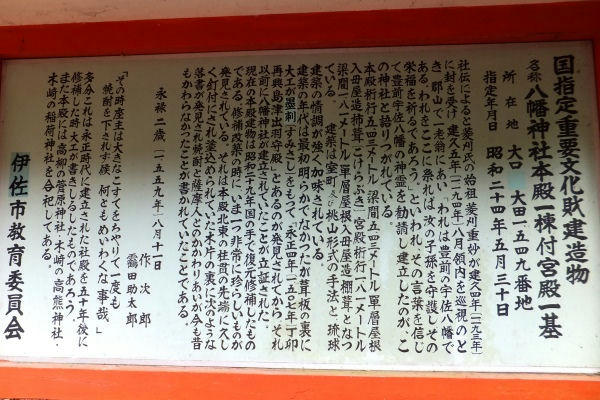 国指定重要文化財建造物
名称 八幡神社本殿一棟付宮殿一基
所在地 大口 大田一五四九番地
指定年月日 昭和二十四年五月三十日
社伝によると菱刈氏の始祖 菱刈重妙が建久四年(一一九三年)
に封を受け 建久五年(一一九四年)八月領内を巡視のと
き、郡山で一老翁にあい「われは豊前の宇佐八幡で
ある、われをここに祭れば汝の子孫を守護しその
栄福を祈るであろう」といわれ、その言葉を信じ
て豊前宇佐八幡の神霊を勧請し建立したのが、こ
の神社と語りつがれている。
本殿桁行五四三メートル 梁間五四三メートル 單層屋根
入母屋造柿葺(こけらぶき)宮殿桁行一八一メートル
梁間一八一メートル單層屋根入母屋造棚葺となつ
ている。
建築は室町、桃山形式の手法と 琉球
建築の情調が強く加味されている。
建築の年代は最初明らかでなかつたが、葺板の裏に
大工が墨刺(すみさし)をもつて「永正四年(一五〇七年)丁卯
再興島津出羽守殿」とあるのが発見されてから、それ
以前に八幡神社が建立されていたことが立証された。
現在の本殿建物は昭和二九年国の手で復元修補したもの
である。修補改築の時にいま一つ非常に珍らしいものが
発見されている。それは本殿北東の柱貫の先端に久し
く釘付にされ塗こめられていた木片の裏に次のような
落書が発見され焼酎と薩摩人とのかかわりあいが今も昔
もかわらなかつたことが書かれていたことである。
永禄二歳(一五五九年)八月十一日
作次郎
靏田助太郎
「その時座主は大きなこすてをちやりて一度も
焼酎を下されず候、何ともめいわくな事哉」
多分これは永正時代に建立された社殿を五十年後に
修補した時大工が書きしるしたものであろう。
また本殿には高柳の菅原神社・木崎の高熊神社・
木崎の稲荷神社を合祀してある。
伊佐市教育委員会